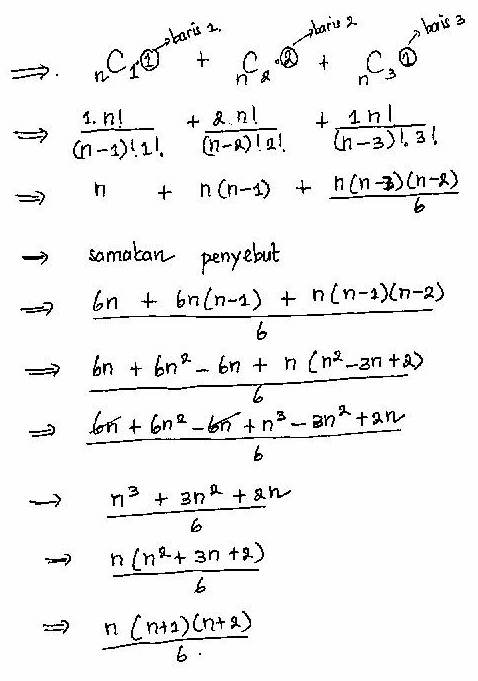 baris 1. baris 2 baris 3
⇒. nC₁·① + nC₂·② + nC₃①
⇒ 1. n!/(n-1)!1!. + 2. n!/(n-2)!2!. + 1 n!/(n-3)!.3!
⇒ n + n(n-1) + n(n-3)(n-2)/6
→ samakan penyebut
⇒ 6n + 6n(n-1) + n(n-1)(n-2)/6
⇒ 6n + 6n² - 6n + n (n² - 3n + 2)/6
⇒ 6n + 6n² - 6n + n³ - 3n² + 2n/6
→ n³ + 3n² + 2n/6
→ n (n² + 3n + 2)/6
⇒ n (n+1)(n+2)/6.